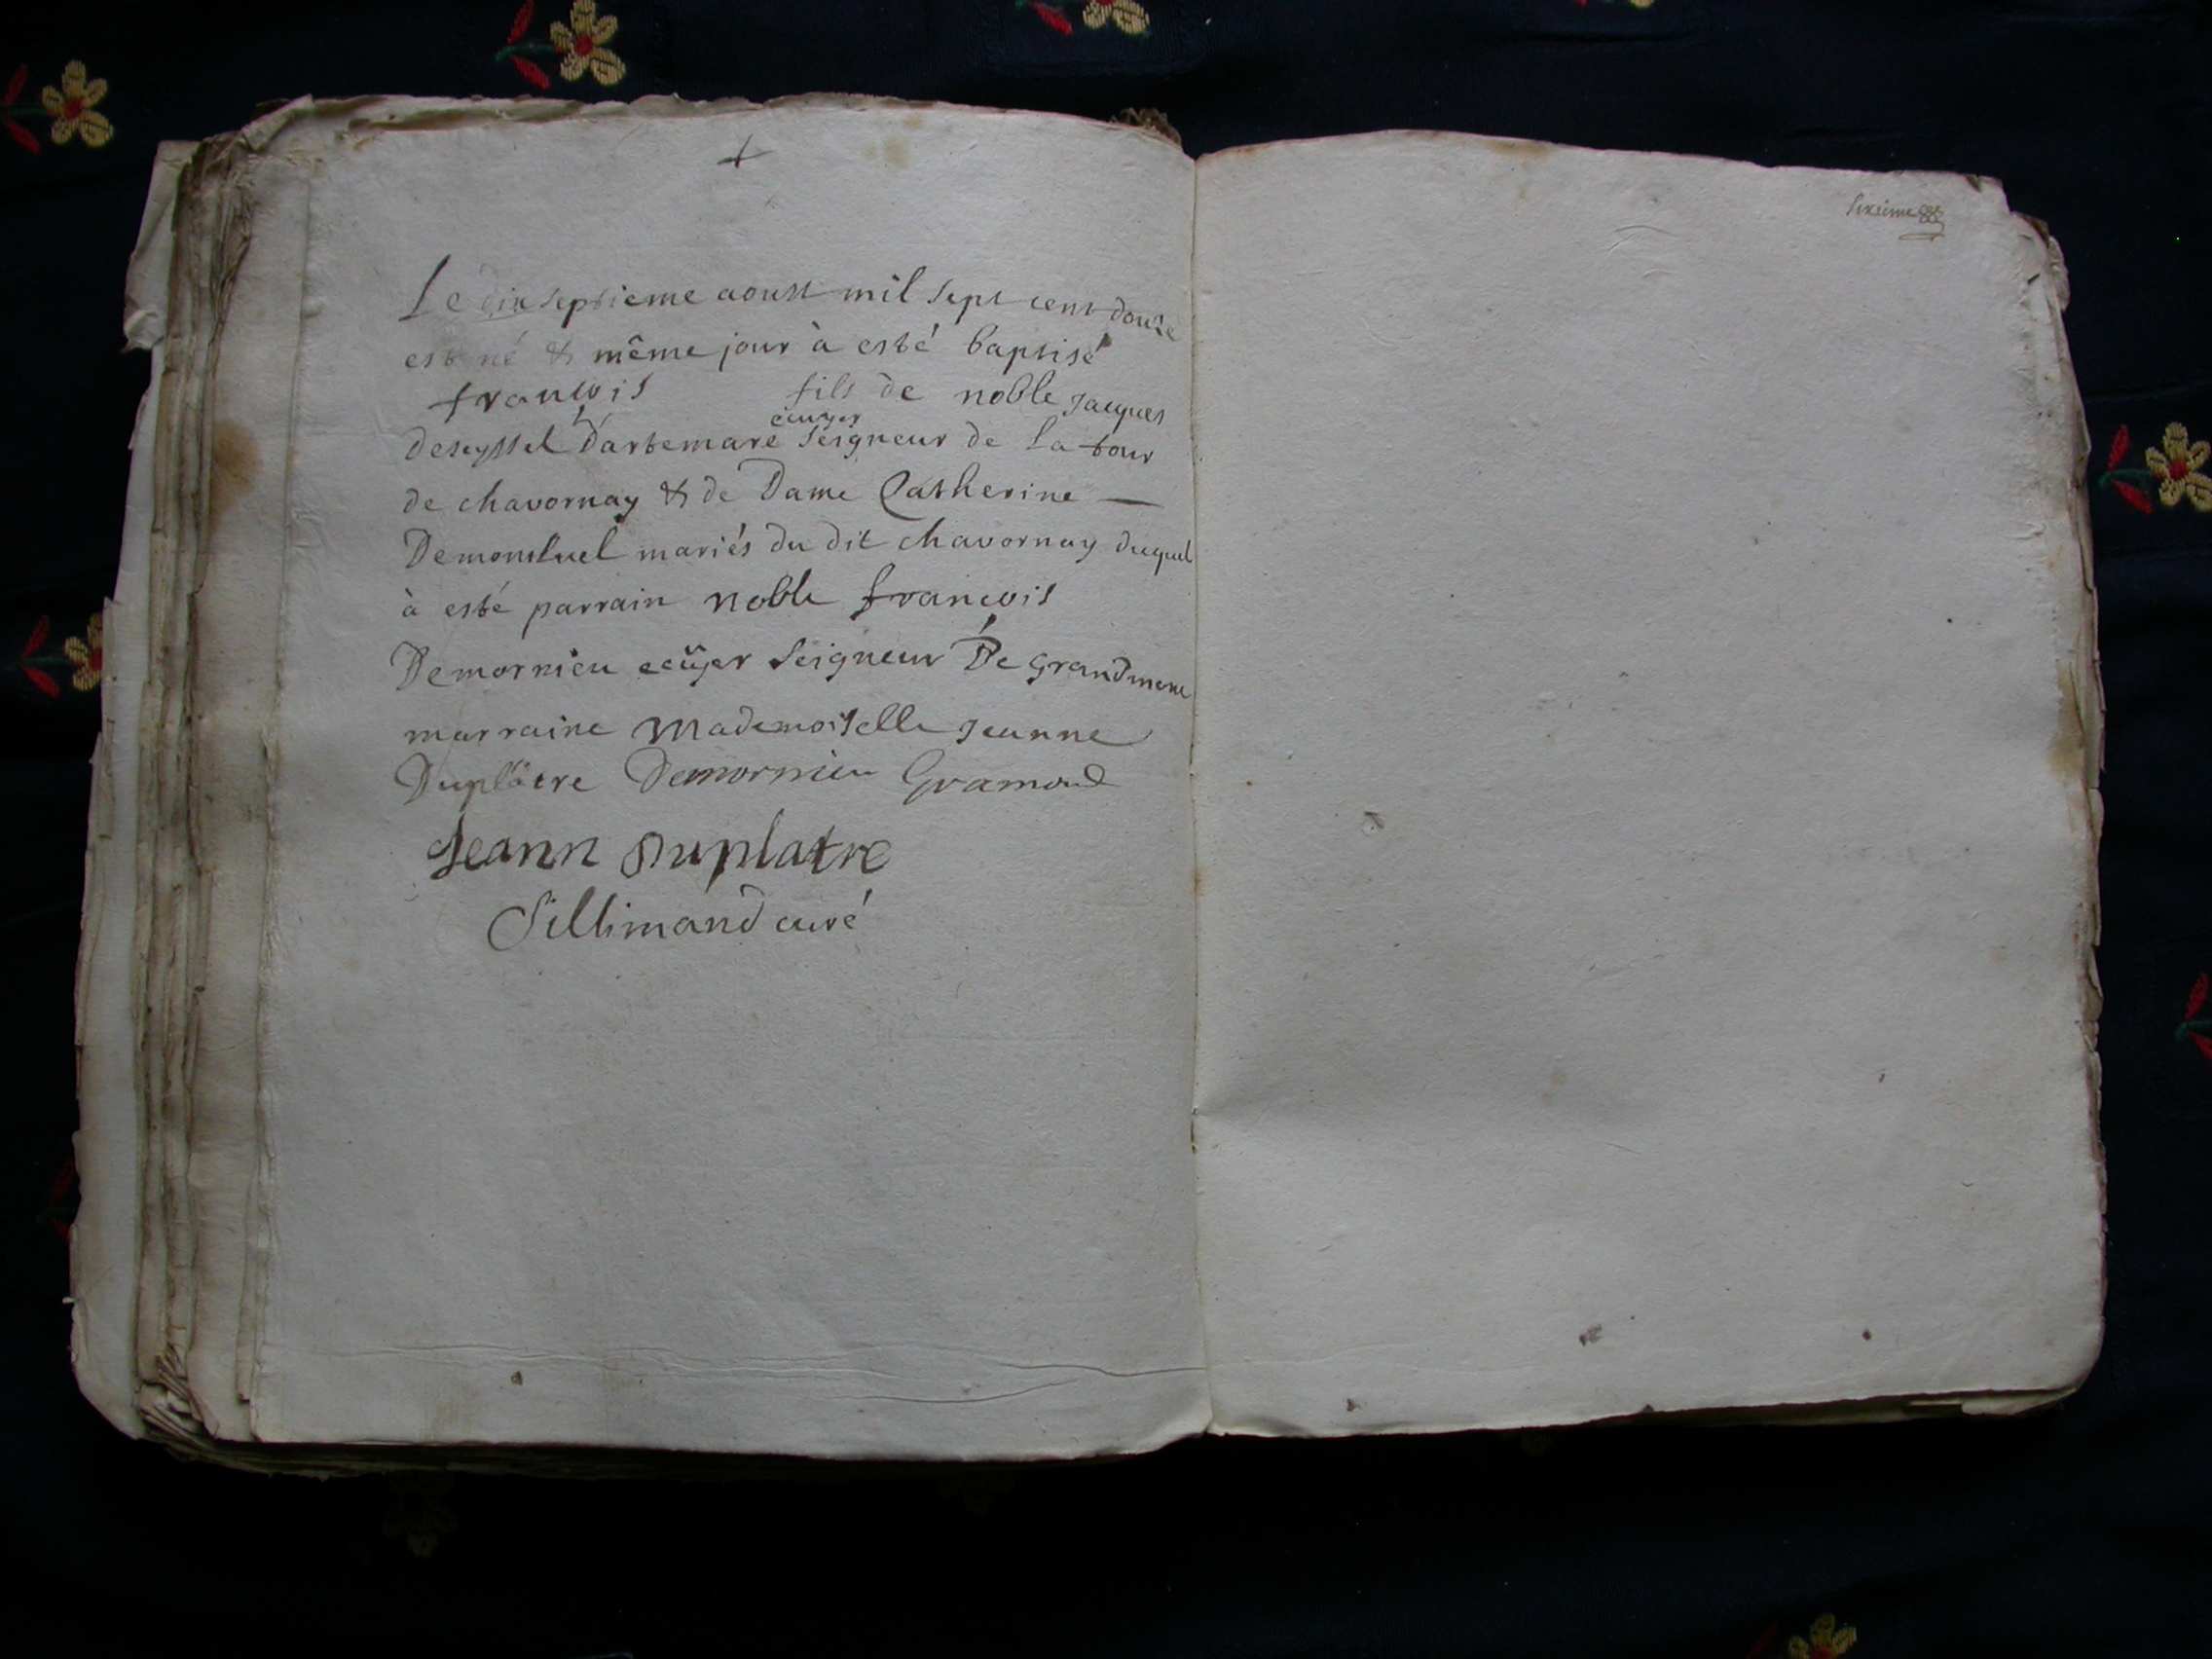 +
Le dixseptieme aoust mil sept cent douze
est né & même jour à esté baptisé
francois fils de noble jacques
deseyssel d'artemare ecuyer seigneur de la tour
de chavornay & de Dame Catherine —
Demonluel mariés du dit chavornay duquel
à esté parrain noble francois
Demornieu ecüyer seigneur De
marraine Mademoiselle jeanne
Duplâtre Demornieu Gramond
Jeann duplatre
Sillimand curé
sixieme